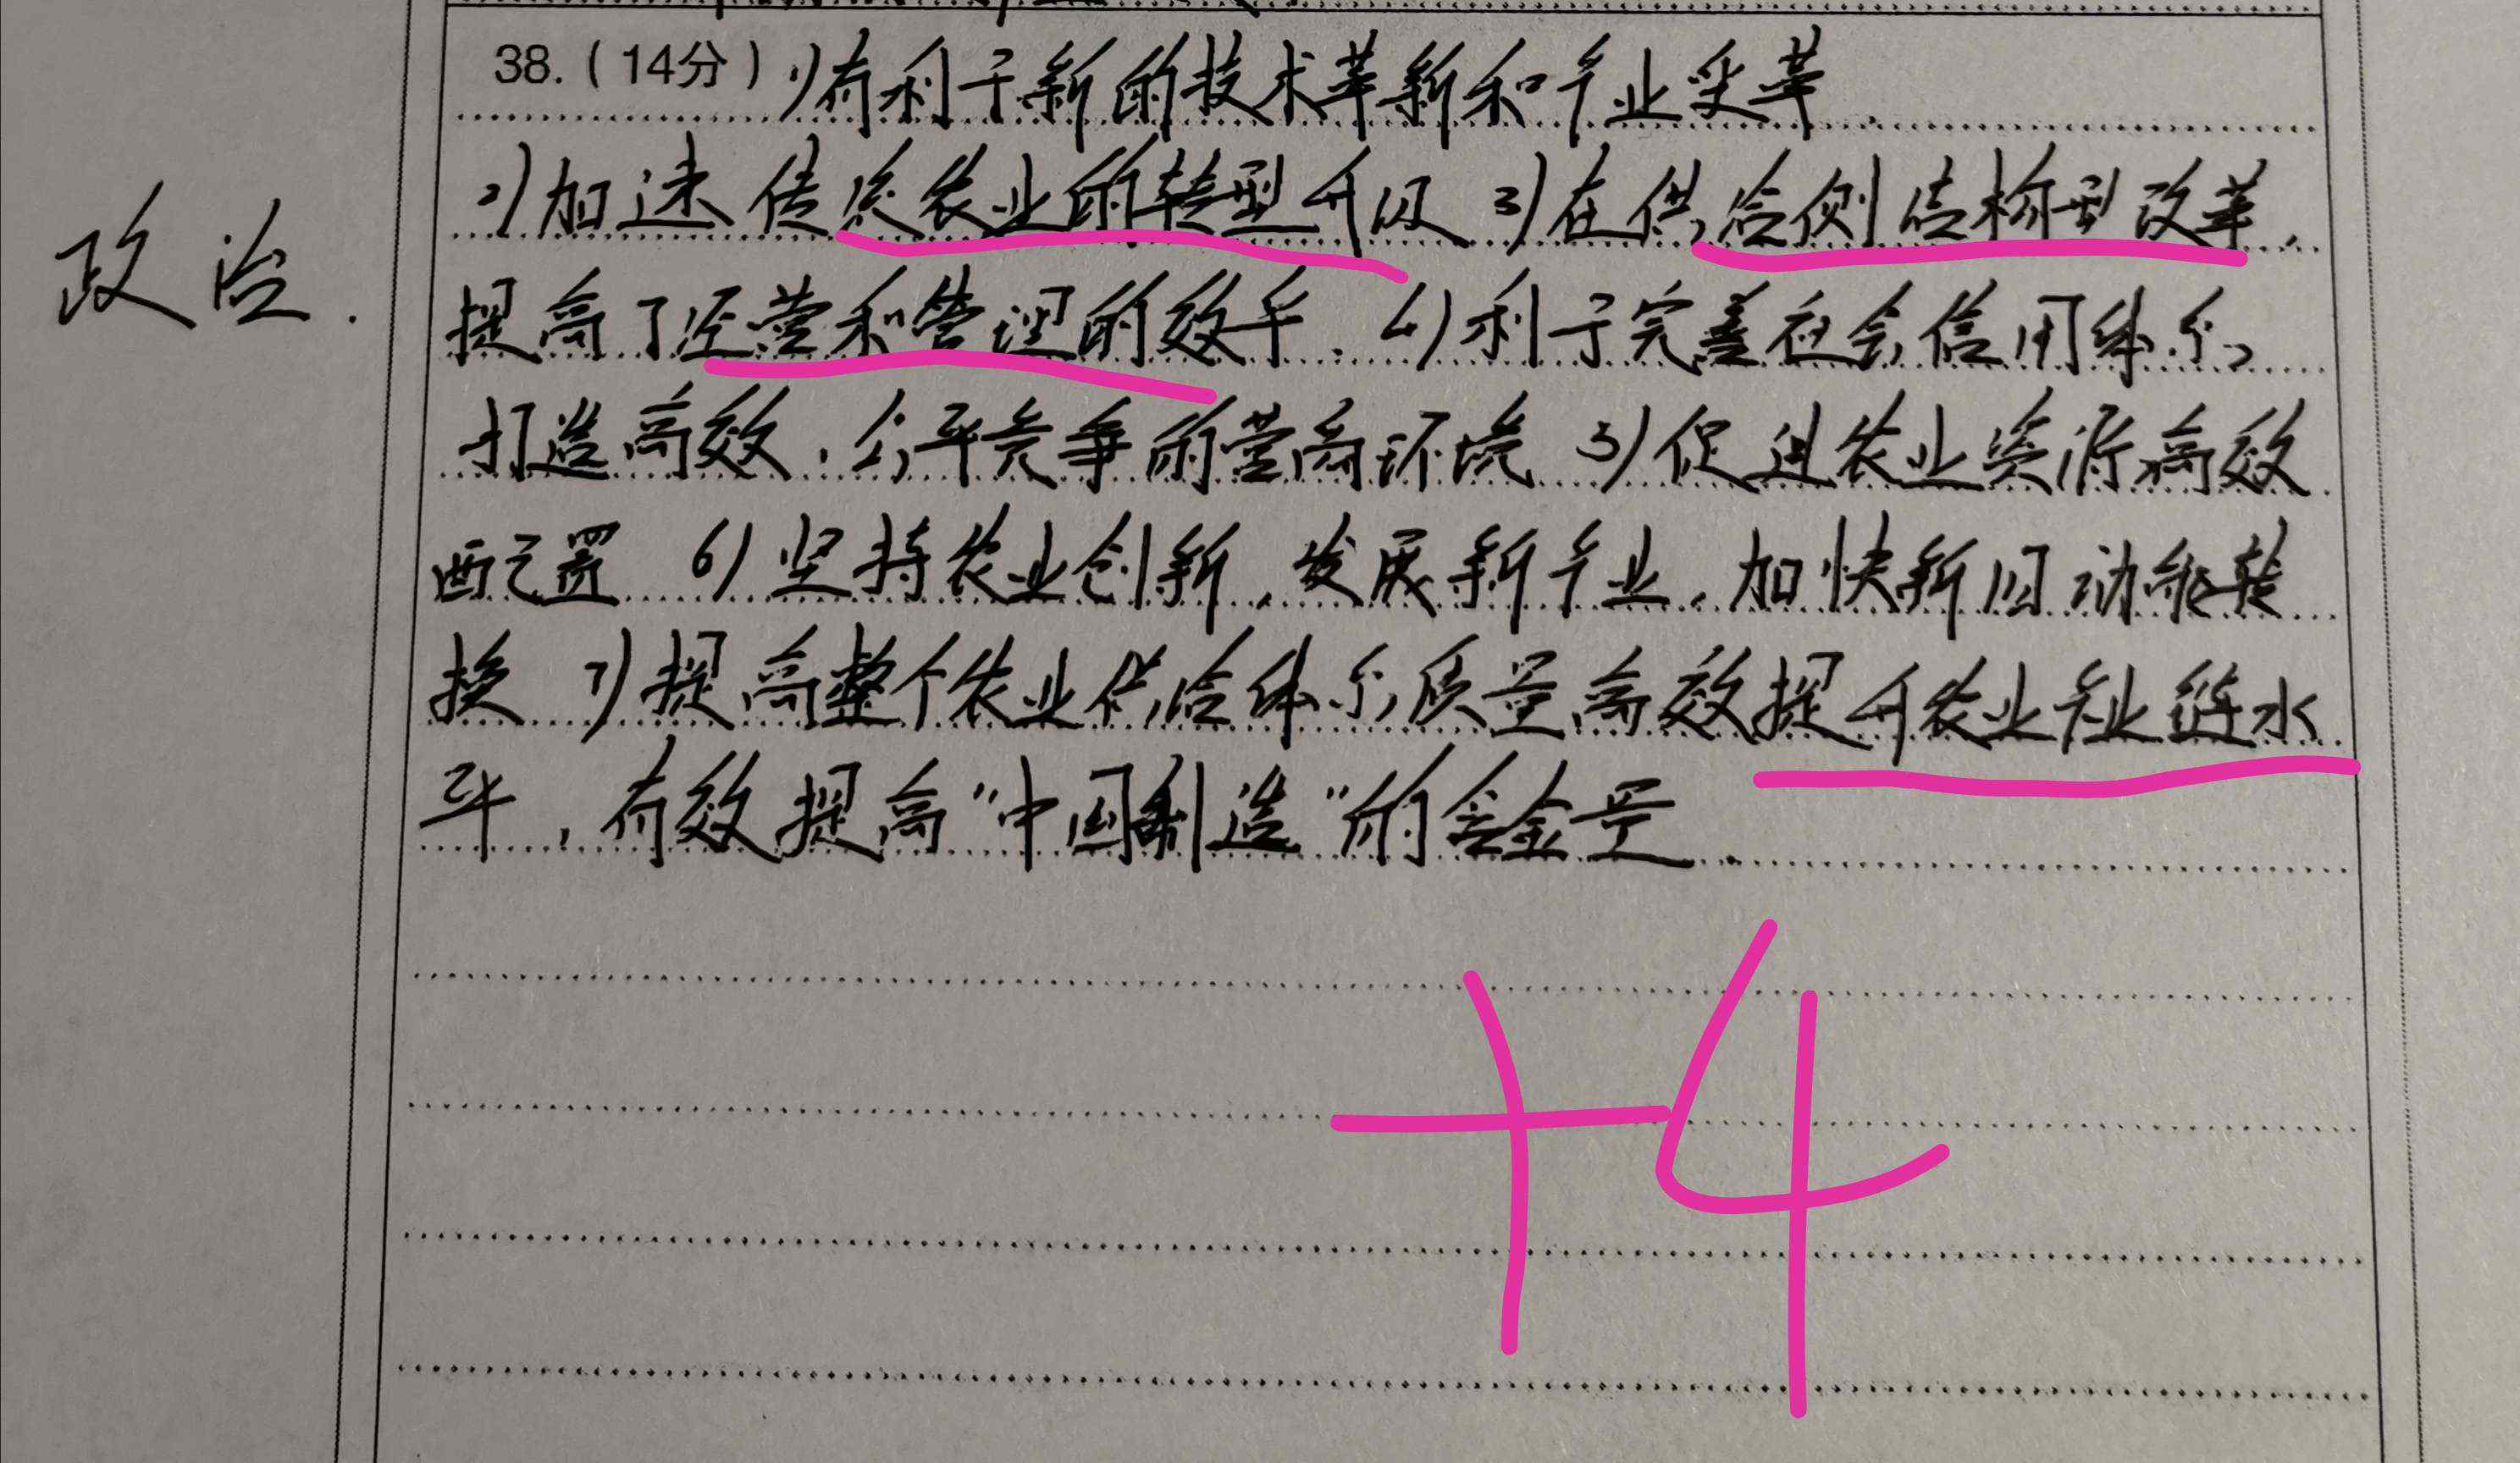 38.（14分）1)有利于新的技术革新和产业变革
2)加速传统农业的转型升级 3)在供给侧结构型改革，
政治.
提高了经营和管理的效率. 4)利于完善社会信用体系，
打造高效，公平竞争的营商环境 5)促进农业资源高效
配置 6)坚持农业创新，发展新产业，加快新旧动能转
换 7)提高整个农业供给体系质量高效提升农业产业链水
平，有效提高"中国制造"的含金量
+4